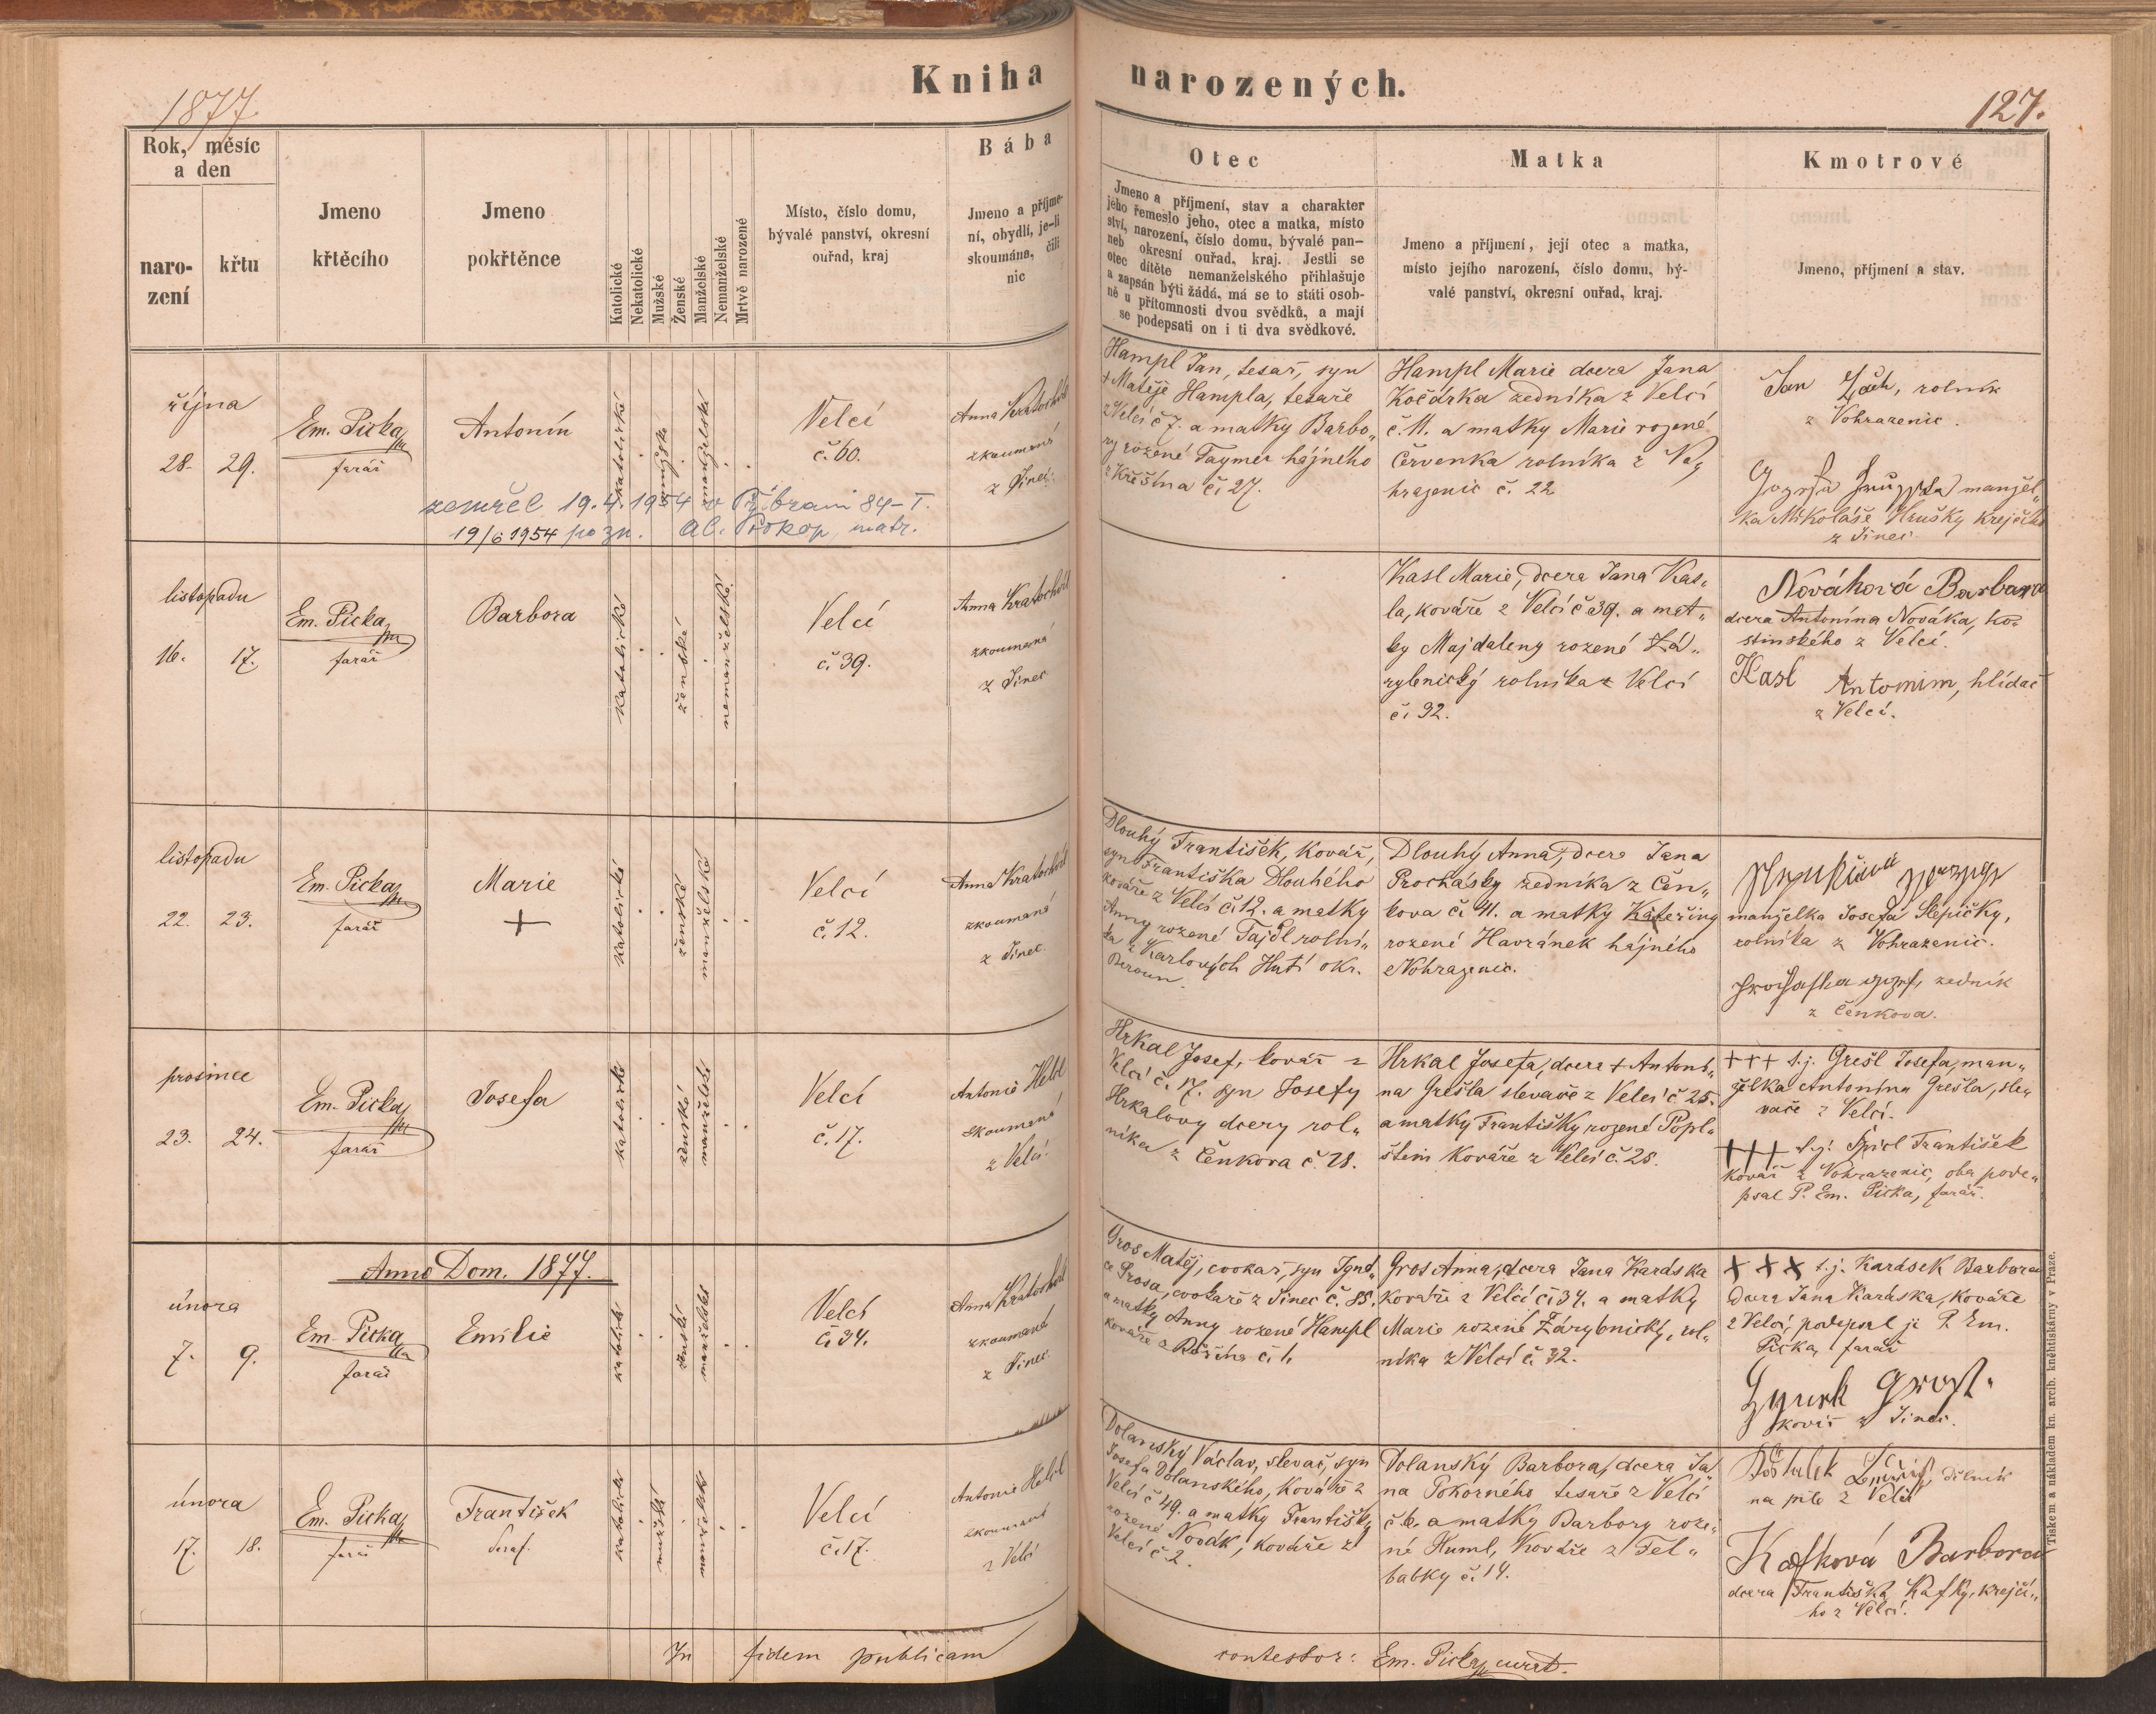 Kniha narozených.
1877.
127.
Rok, měsíc
a den
naro-
zení
křtu
Jmeno
křtěcího
Jmeno
pokřtěnce
Katolické
Nekatolické
Mužské
Ženské
Manželské
Nemanželské
Mrtvě narozené
Místo, číslo domu,
bývalé panství, okresní
ouřad, kraj
Bába
Jmeno a příjme-
ní, obydlí, je-li
skoumána, čili
nic
Otec
Jmeno a příjmení, stav a charakter
jeho řemeslo jeho, otec a matka, místo
ství, narození, číslo domu, bývalé pan-
neb okresní ouřad, kraj. Jestli se
otec dítěte nemanželského přihlašuje
a zapsán býti žádá, má se to státi osob-
ně u přítomnosti dvou svědků, a mají
se podepsati on i ti dva svědkové.
Matka
Jmeno a příjmení, její otec a matka,
místo jejího narození, číslo domu, bý-
valé panství, okresní ouřad, kraj.
Kmotrové
Jmeno, příjmení a stav.
října
28. 29.
Em. Picka
farář
Antonín
katolické
mužské
manželské
Velcí
č. 60.
Anna Kratochvíl
zkoumaná
z Jinec
zemřel 19.4.1954 v Příbrami 84-I.
19/6 1954 pozn. Al. Prokop, matr.
Hampl Jan, tesař, syn
+ Matěje Hampla, tesaře
z Velcí č 7. a matky Barbo„
ry rozené Taymer hájného
z Křešína či 27.
Hampl Marie dcera Jana
Kočárka zedníka z Velcí
č. 11. a matky Marie rozené
Červenka rolníka z Vo„
hrazenic č. 22
Jan Zách, rolník
z Vohrazenic.
manžel„
ka Mikoláše Hrušky krejčího
z Jinec.
listopadu
16. 17.
Em. Picka
farář
Barbora
katolické
ženské
nemanželské
Velcí
č. 39.
Anna Kratochvíl
zkoumaná
z Jinec
Kasl Marie, dcera Jana Kas„
la, kováře z Velcí č 39. a mat„
ky Majdaleny rozené Zá„
rybnický rolníka z Velcí
či 32.
Nováková Barbara
dcera Antonína Nováka, ho-
stinského z Velcí.
Kasl Antonin, hlídač
z Velcí.
listopadu
22. 23.
Em. Picka
farář
Marie
+
katolické
ženské
manželské
Velcí
č. 12.
Anna Kratochvíl
zkoumaná
z Jinec.
Dlouhý František, Kovář,
syn Františka Dlouhého
kováře z Velcí či 12. a matky
Anny rozené Tajdl rolní„
ka z Karlových Hutí okr.
Beroun.
Dlouhý Anna, dcera Jana
Procházky zedníka z Čen„
kova či 41. a matky Kateřiny
rozené Havránek hájného
z Vohrazenic.
manželka Josefa Slepičky,
rolníka z Vohrazenic.
zedník
z Čenkova.
prosince
23. 24.
Em. Picka
farář
Josefa
katolické
ženské
manželské
Velcí
č. 17.
Antonie Hebl
zkoumaná
z Velcí
Hrkal Josef, kovář z
Velcí č. 17. syn Josefy
Hrkalovy dcery rol„
níka z Čenkova č. 28.
Hrkal Josefa, dcera + Antoní„
na Grešla slevače z Velcí č 25.
a matky Františky rozené Popl„
štein Kováře z Velcí č. 28.
+++ t.j. Grešl Josefa, man„
želka Antonína Grešla, sle„
vače z Velcí.
+++ t.j. František
kovář z Vohrazenic, oba pode„
psal P. Em. Picka, farář.
Anno Dom. 1877.
února
7. 9.
Em. Picka
farář
Emilie
katolické
ženské
manželské
Velcí
či 34.
Anna Kratochvíl
zkoumaná
z Jinec.
Gros Matěj, cvokař, syn Igná„
ce Grosa, cvokaře z Jinec č. 85.
a matky Anny rozené Hampl
kováře z či 1.
Gros Anna, dcera Jana Karáska
kováře z Velcí či 34. a matky
Marie rozené Zárybnický, rol„
níka z Velcí č. 32.
+++ t.j. Karásek Barbora
dcera Jana Karáska, kováře
z Velcí, podepsal ji P. Em.
Picka, farář
kovář z Jinec.
února
17. 18.
Em. Picka
farář
František
Seraf.
katolické
mužské
manželské
Velcí
či 17.
Antonie Hebl
zkoumaná
z Velcí
Dolanský Václav, slevač, syn
Josefa Dolanského, Kováře z
Velcí č 49. a matky Františky
rozené Novák, kováře z
Velcí č 2.
Dolanský Barbora, dcera Ja„
na Pokorného tesaře z Velcí
č 6. a matky Barbory roze„
né Huml, Kováře z Fel„
babky č. 14.
dělník
na pile z Velcí
Kafková Barbora
dcera Františka Kafky, krejčí„
ho z Velcí.
In fidem publicam contestor: Em. Picka, curat.
Tiskem a nákladem kn. arcib. kněhtiskárny v Praze.